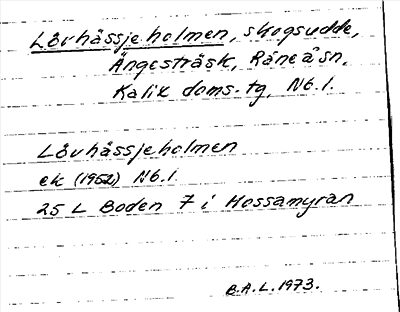 Lövhässjeholmen, skogsudde,
Ängesträsk, Råneå sn,
Kalix doms. tg, Nb. l.
Lövhässjeholmen
ek (1952) Nb. l
25 L Boden 7 i Hossamyran
B.A.L. 1973.